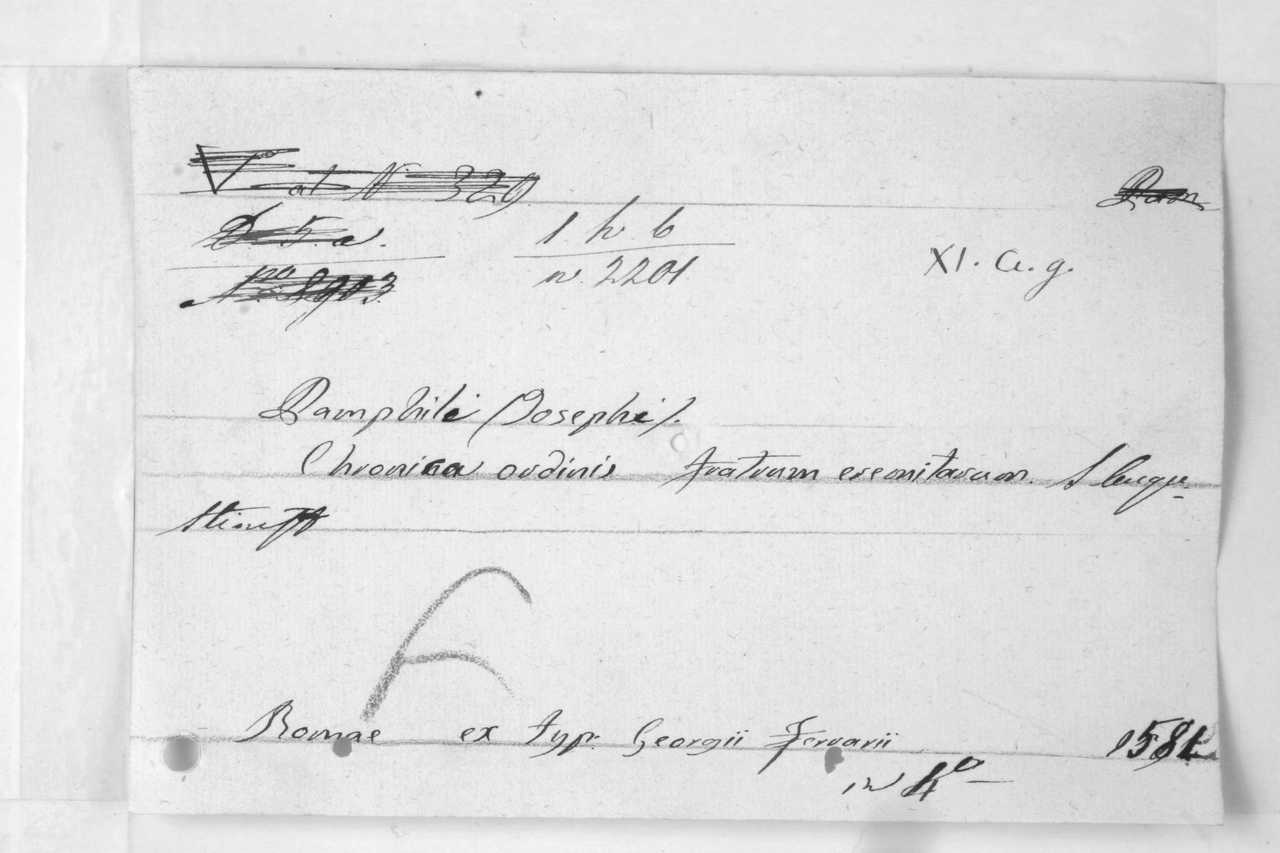 at N. 320
Pam
5. a.
1. h. b
XI. a. g.
No 8903
n. 2201
Pamphili (Josephi).
Chronica ordinis fratrum eremitarum. S Augu-
stini
F
Romae ex typ. Georgii Ferrarii 1581
in 4o